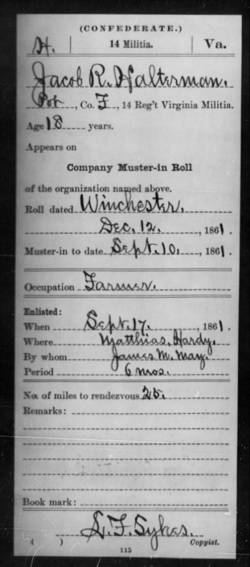 (CONFEDERATE.)
H. 14 Militia. Va.
Jacob R. Halterman.
Pvt., Co. F, 14 Reg't Virginia Militia.
Age 18 years.
Appears on
Company Muster-in Roll
of the organization named above.
Roll dated Winchester.
Dec. 12, 1861.
Muster-in to date Sept. 10, 1861.
Occupation Farmer.
Enlisted:
When Sept. 17, 1861.
Where Matthias, Hardy.
By whom James M. May.
Period 6 mos.
No. of miles to rendezvous 25.
Remarks:
Book mark:
L. F. Sykes.
( ) Copyist.
115